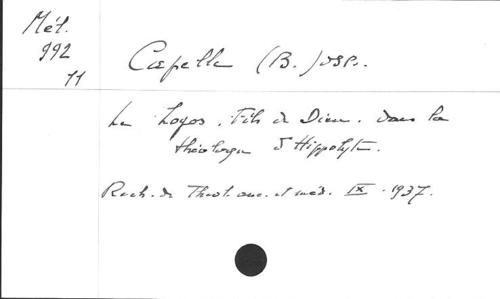 Mél.
992
11
Capelle (B.) OSB.
Le Logos, Fils de Dieu, dans la
théologie d'Hippolyte.
Rech. de Théol. anc. et méd. IX. 1937.